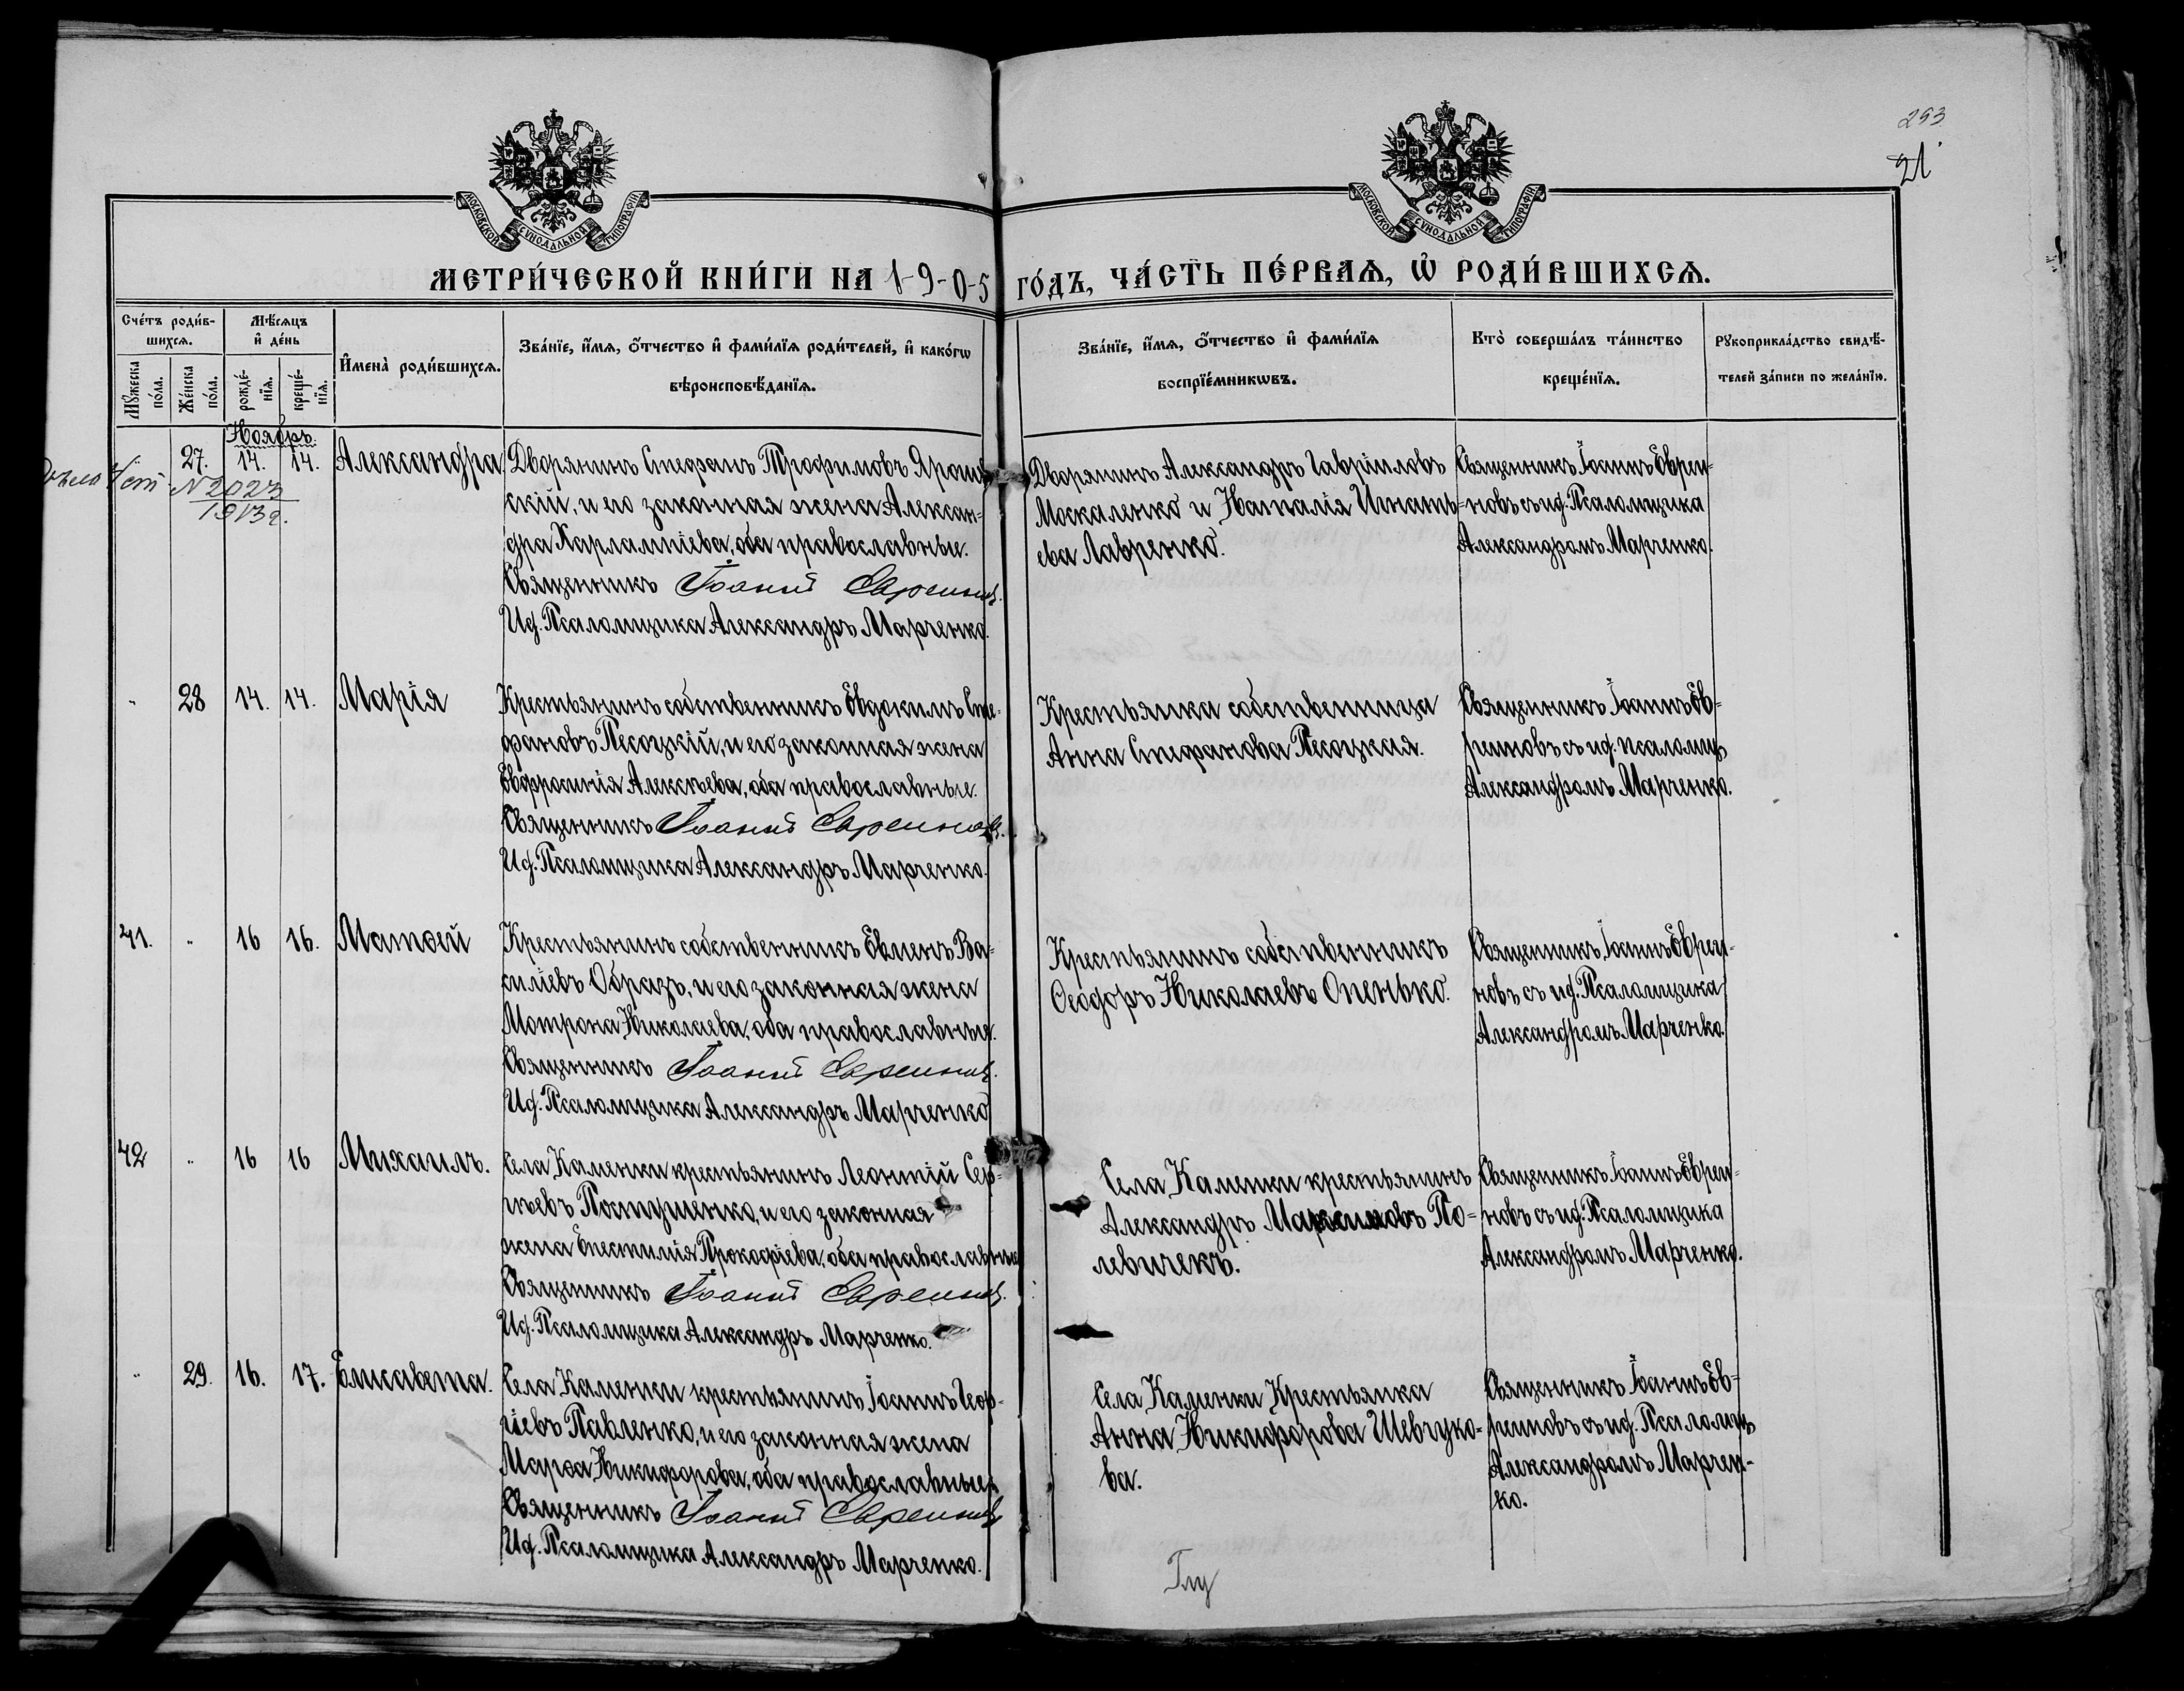 293
21
МОСКОВСКОЙ СѴНОДАЛЬНОЙ ТИПОГРАФІИ
МОСКОВСКОЙ СѴНОДАЛЬНОЙ ТИПОГРАФІИ
МЕТРИ́ЧЕСКОЙ КНИ́ГИ НА 1905 ГО́ДЪ, ЧА́СТЬ ПЕ́РВАѦ, Ѡ҆ РОДИ́ВШИХСѦ.
Сче́тъ роди́в-
шихсѧ.
Мꙋ́жеска по́ла.
Же́нска по́ла.
Мѣ́сѧцъ
и҆ де́нь
рожде́-
нїѧ.
креще́-
нїѧ.
И҆мена̀ роди́вшихсѧ.
Зва́нїе, и҆́мѧ, ѻ҆́тчество и҆ фами́лїѧ роди́телей, и҆ како́гѡ
вѣроисповѣ́данїѧ.
Зва́нїе, и҆́мѧ, ѻ҆́тчество и҆ фами́лїѧ
воспрїе́мникѡвъ.
Кто̀ соверша́лъ та́инство
креще́нїѧ.
Рꙋкоприкла́дство свидѣ́-
телей за́писи по жела́нїю.
Ноябрь.
27. 14. 14. Александра
N 2023
1913 г.
Дворянинъ Стефанъ Трофимовъ Ярош-
скій, и его законная жена Алексан-
дра Харлампіева, оба православные.
Священникъ Іоаннъ Евреиновъ.
Иф. Псаломщика Александръ Марченко.
Дворянинъ Александръ Гавріиловъ
Москаленко и Наталія Игнать-
ева Лавренко.
Священникъ Іоаннъ Евреи-
новъ съ иф. Псаломщика
Александромъ Марченко.
" 28 14. 14. Марія
Крестьянинъ собственникъ Евдокимъ Сте-
фановъ Песоцкій, и его законная жена
Евфросинія Алексѣева, оба православные.
Священникъ Іоаннъ Евреиновъ.
Иф. Псаломщика Александръ Марченко.
Крестьянка собственница
Анна Стефанова Песоцкая.
Священникъ Іоаннъ Ев-
реиновъ съ иф. псаломщ.
Александромъ Марченко.
41. " 16 16. Матѳей
Крестьянинъ собственникъ Евменъ Ва-
силіевъ Образъ, и его законная жена
Мотрона Николаева, оба православные.
Священникъ Іоаннъ Евреиновъ.
Иф. Псаломщика Александръ Марченко
Крестьянинъ собственникъ
Ѳеодоръ Николаевъ Опенько.
Священникъ Іоаннъ Евреи-
новъ съ иф. Псаломщика
Александромъ Марченко.
42 " 16 16 Михаилъ.
Села Каменки крестьянинъ Леонтій Сер-
гѣевъ Постушенко, и его законная
жена Епистимія Прокофіева, оба православные
Священникъ Іоаннъ Евреиновъ.
Иф. Псаломщика Александръ Марченко.
Села Каменки крестьянинъ
Александръ Максимовъ По-
левичекъ.
Священникъ Іоаннъ Евреи-
новъ съ иф. Псаломщика
Александромъ Марченко.
" 29. 16. 17. Елисавета.
Села Каменки крестьянинъ Іоаннъ Геор-
гіевъ Павленко, и его законная жена
Марѳа Никифорова, оба православные,
Священникъ Іоаннъ Евреиновъ
Иф. Псаломщика Александръ Марченко.
Села Каменки Крестьянка
Анна Никифорова Шевчуко-
ва.
Священникъ Іоаннъ Ев-
реиновъ съ иф. Псаломщ.
Александромъ Марчен-
ко.